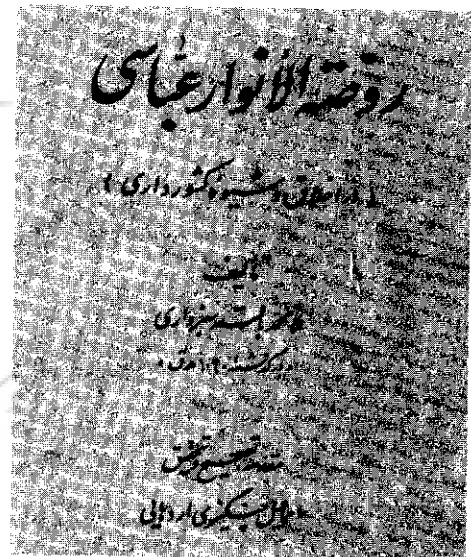 روضة الأنوار عباسی
(در اخلاق و شیوه کشورداری)
تألیف
محقق سبزواری
درگذشته ۱۰۹۰ ه‍.ق
مقدمه، تصحیح و تحقیق
اسماعیل چنگیزی اردهایی